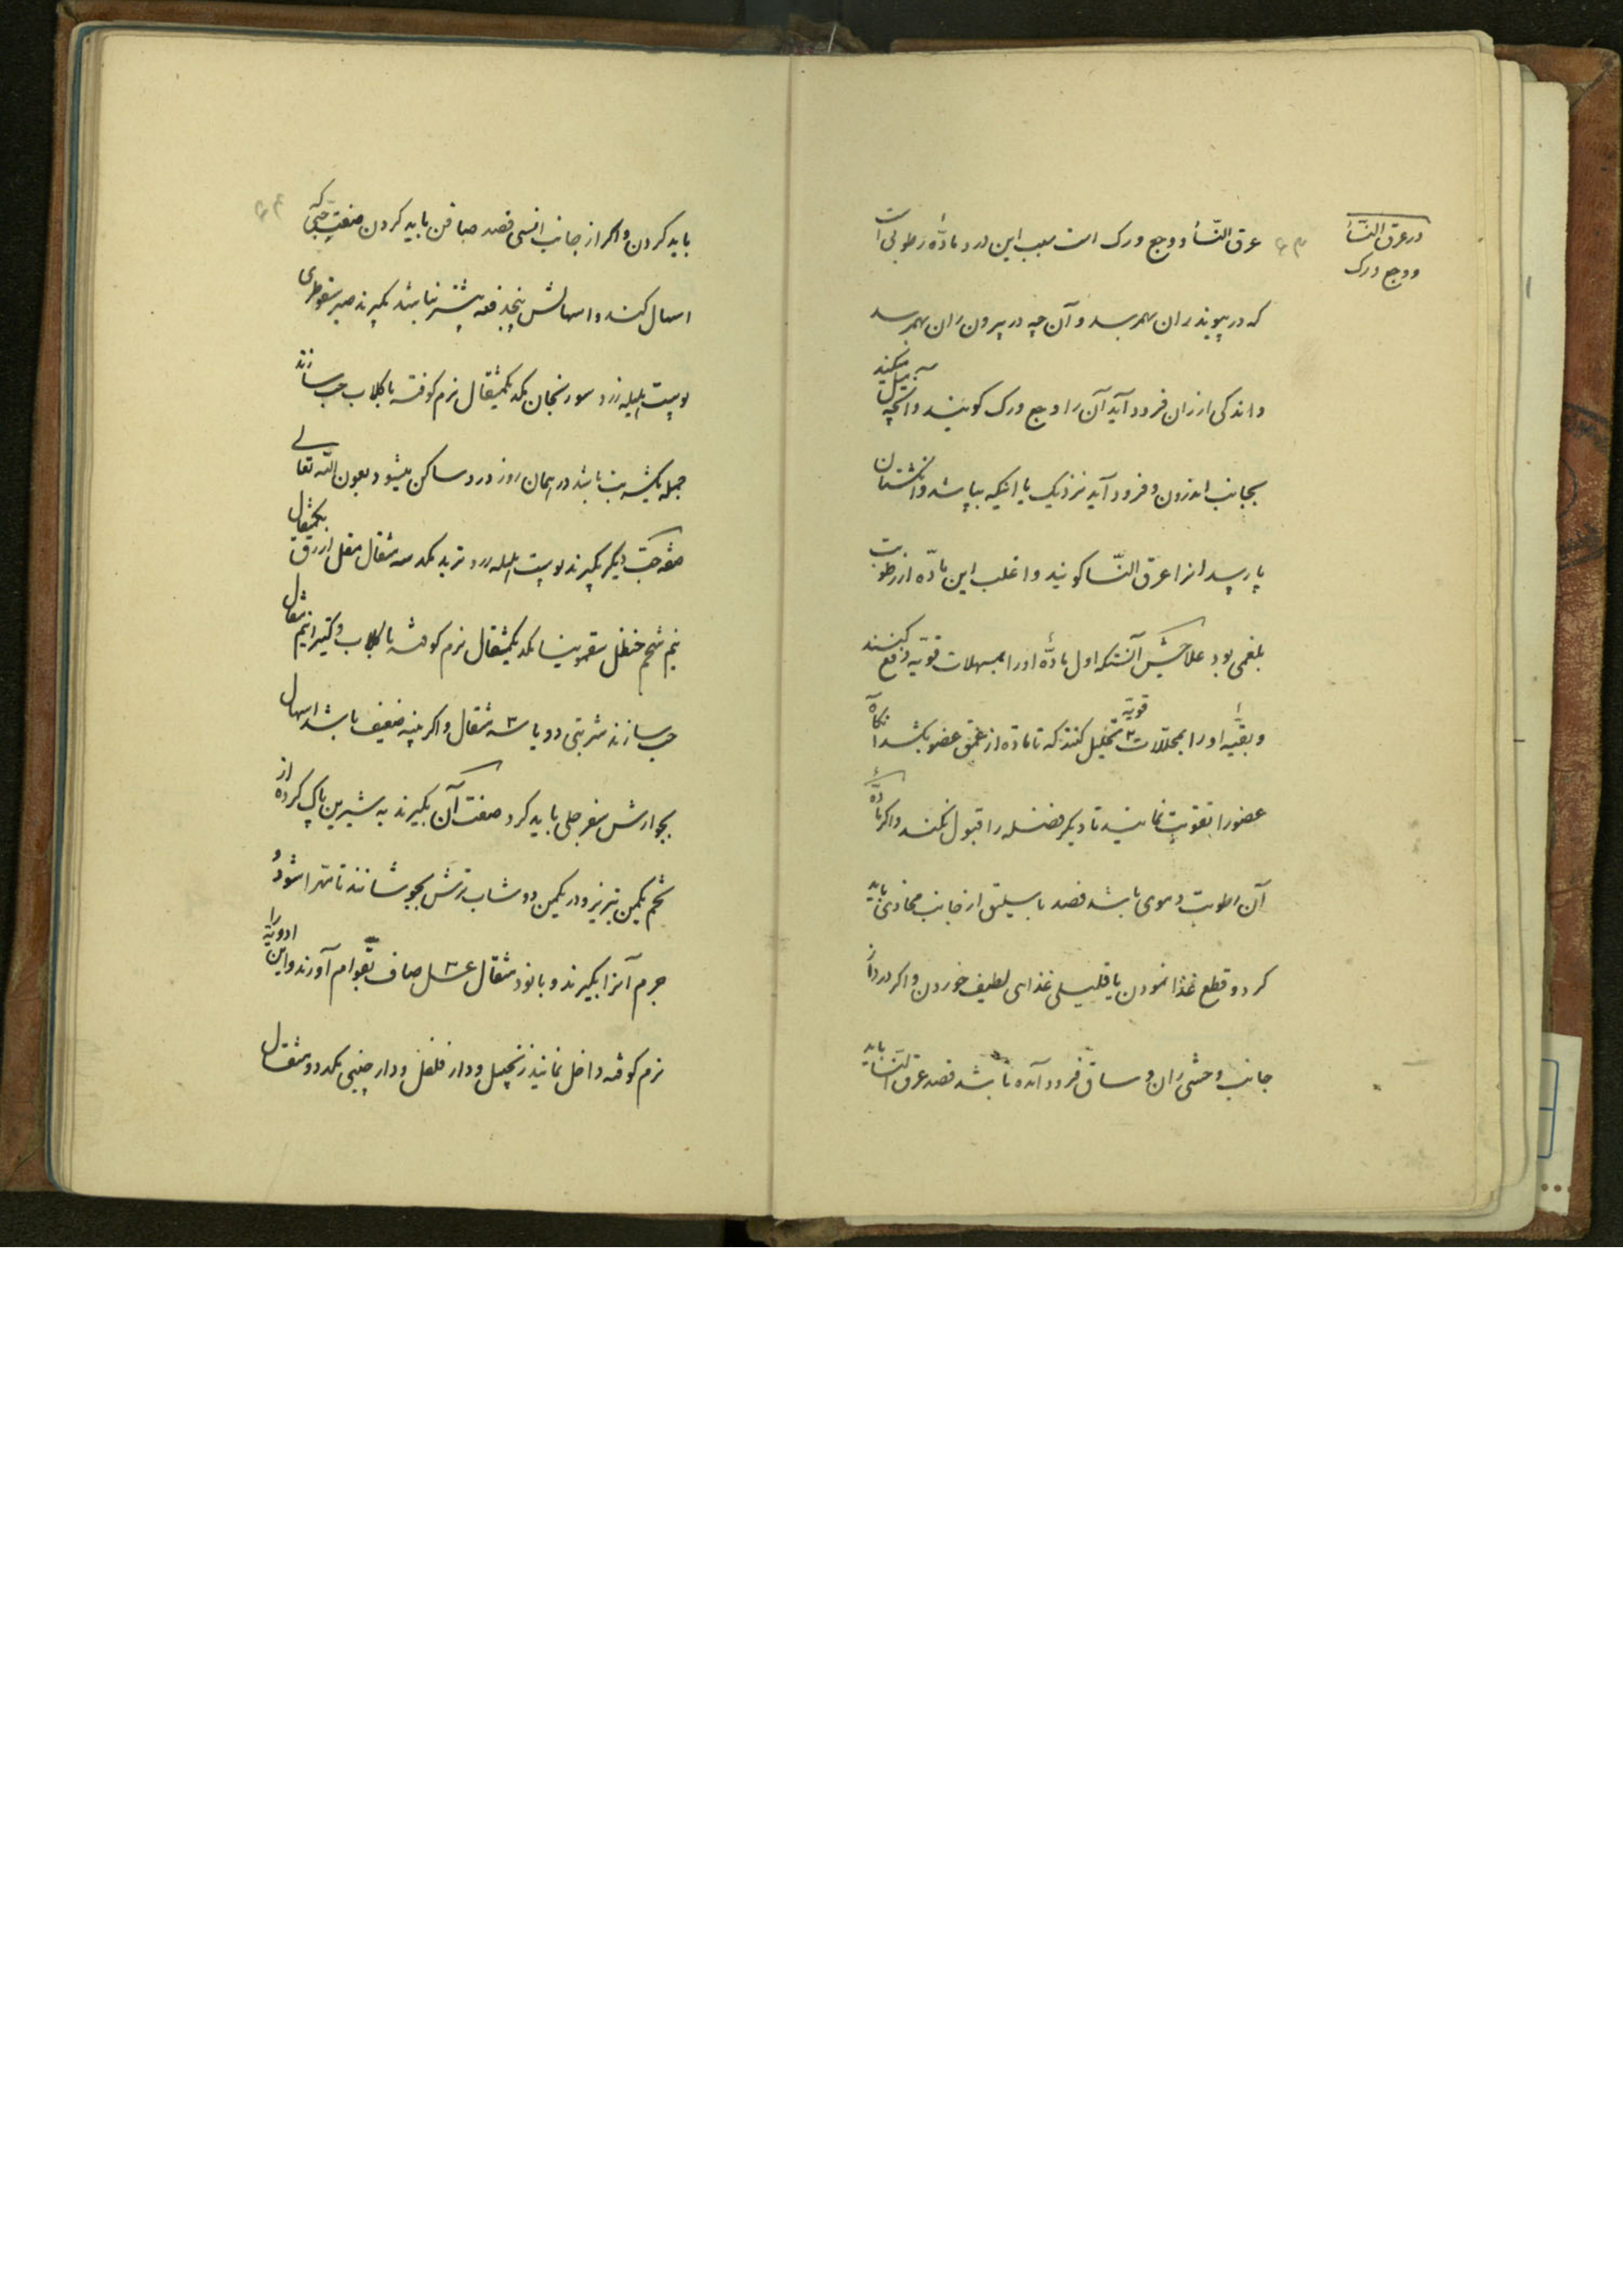 در عرق النسأ
و وجع ورک
عرق النسأ و وجع ورک است سبب این درد مادّهٔ رطوبی است
که در پیوند ران بهمرسد و آن چه در بیرون ران بهمرسد
و اندکی از ران فرود آید آن را وجع ورک کویند و آنچه میل میکند
بجانب اندرون و فرود آید نزدیک یا اینکه بپاشد و انکشتان
پا رسد انرا عرق النّسا کویند و اغلب این مادّه از رطوبت
بلغمی بود علاجش آنستکه اول مادّهٔ او را بمسهلات قویه دفع کنند
و بقیّهٔ او را بمحللات قویّه تحلیل کنند که تا مادّه از عمق عضو بکشد آنکاه
عضو را تقویت نمایند تا دیکر فضله را قبول نکند و اکر مادّهٔ
آن رطوبت دموی باشد فصد باسیلیق از جانب محاذی باید
کرد و قطع غذا نمودن یا قلیلی غذای لطیف خوردن و اکر درد از
جانب وحشی ران و ساق فرود آمده باشد فصد عرق النّسا باید
باید کردن و اکر از جانب انسی فصد صافن باید کردن صفت حبّی که
اسهال کند و اسهالش پنجدفعه بیشتر نباشد بکیرند صبر سقوطری
پوست هلیله زرد سورنجان یکمثقال نرم کوفته با کلاب حب سازند
جمله یکشربت باشد در همان روز درد ساکن میشود بعون الله تعالی
صفة حبّ دیکر بکیرند پوست هلیله زرد تربد سه مثقال مقل ازرق یکمثقال
نیم شحم حنظل سقمونیا یکمثقال نرم کوفته با کلاب و کتیرا نیم مثقال
حب سازند شربتی دو یا سه مثقال و اکر بنیه ضعیف باشد اسهال
بجوارش سفرجلی باید کرد صفت آن بکیرند به شیرین پاک کرده از
تخم یکمن تبریز و در یکمن دوشاب ترش بجوشانند تا مهرا شود و
جرم آنرا بکیرند و با نود مثقال عسل صاف بقوام آورند و این ادویه را
نرم کوفته داخل نمایند زنجبیل و دار فلفل و دارچینی دو مثقال